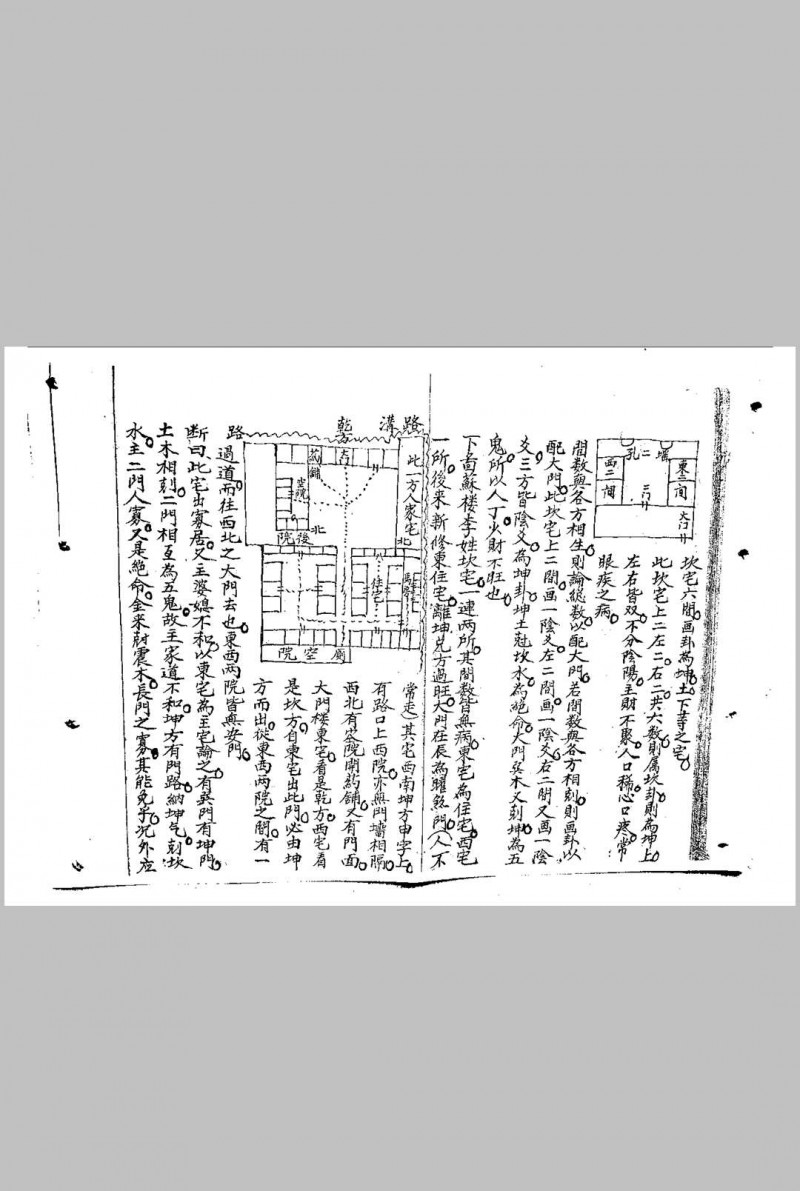 坎宅六間画卦為坤土下等之宅
此坎宅上二左二右二共六数則属坎卦則為坤上
左右皆双不分陰陽主財不聚人口稀心口疼常
眼疾之病
東二間
大门
墙
二
孔
二门
西二間
間数與各方相生則論總数以配大門若間数與各方相剋則画卦以
配大門此坎宅上二間画一陰爻左二間画一陰爻右二間又画一陰
爻三方皆陰爻為坤卦坤土尅坎水為絕命大門巽木又剋坤為五
鬼所以人丁火財不旺也
下面蘇楼李姓坎宅一連兩所其間数皆無病東宅為住宅西宅
一所後来新修東住宅離坤兑方過旺大门在辰為曜煞門(人不
路
溝
乾方
此一方人家宅
北
大门
药铺
空院
北
後
院
住宅
院空廟
常走)其宅西南坤方申字上
有路口上西院亦無門墻相隔
西北有客院開葯鋪又有門面
大門楼東宅看是乾方西宅看
是坎方自東宅出此門必由坤
方而出從東西兩院之間有一
路過道而往西北之大門去也東西兩院皆無安門
断曰此宅出寡居又主婆媳不和以東宅為主宅論之有巽門有坤門
土木相剋二門相互為五鬼故主家道不和坤方有門路納坤气剋坎
水主二門人寡又是絕命金来尅震木長門之寡其能免乎况外应